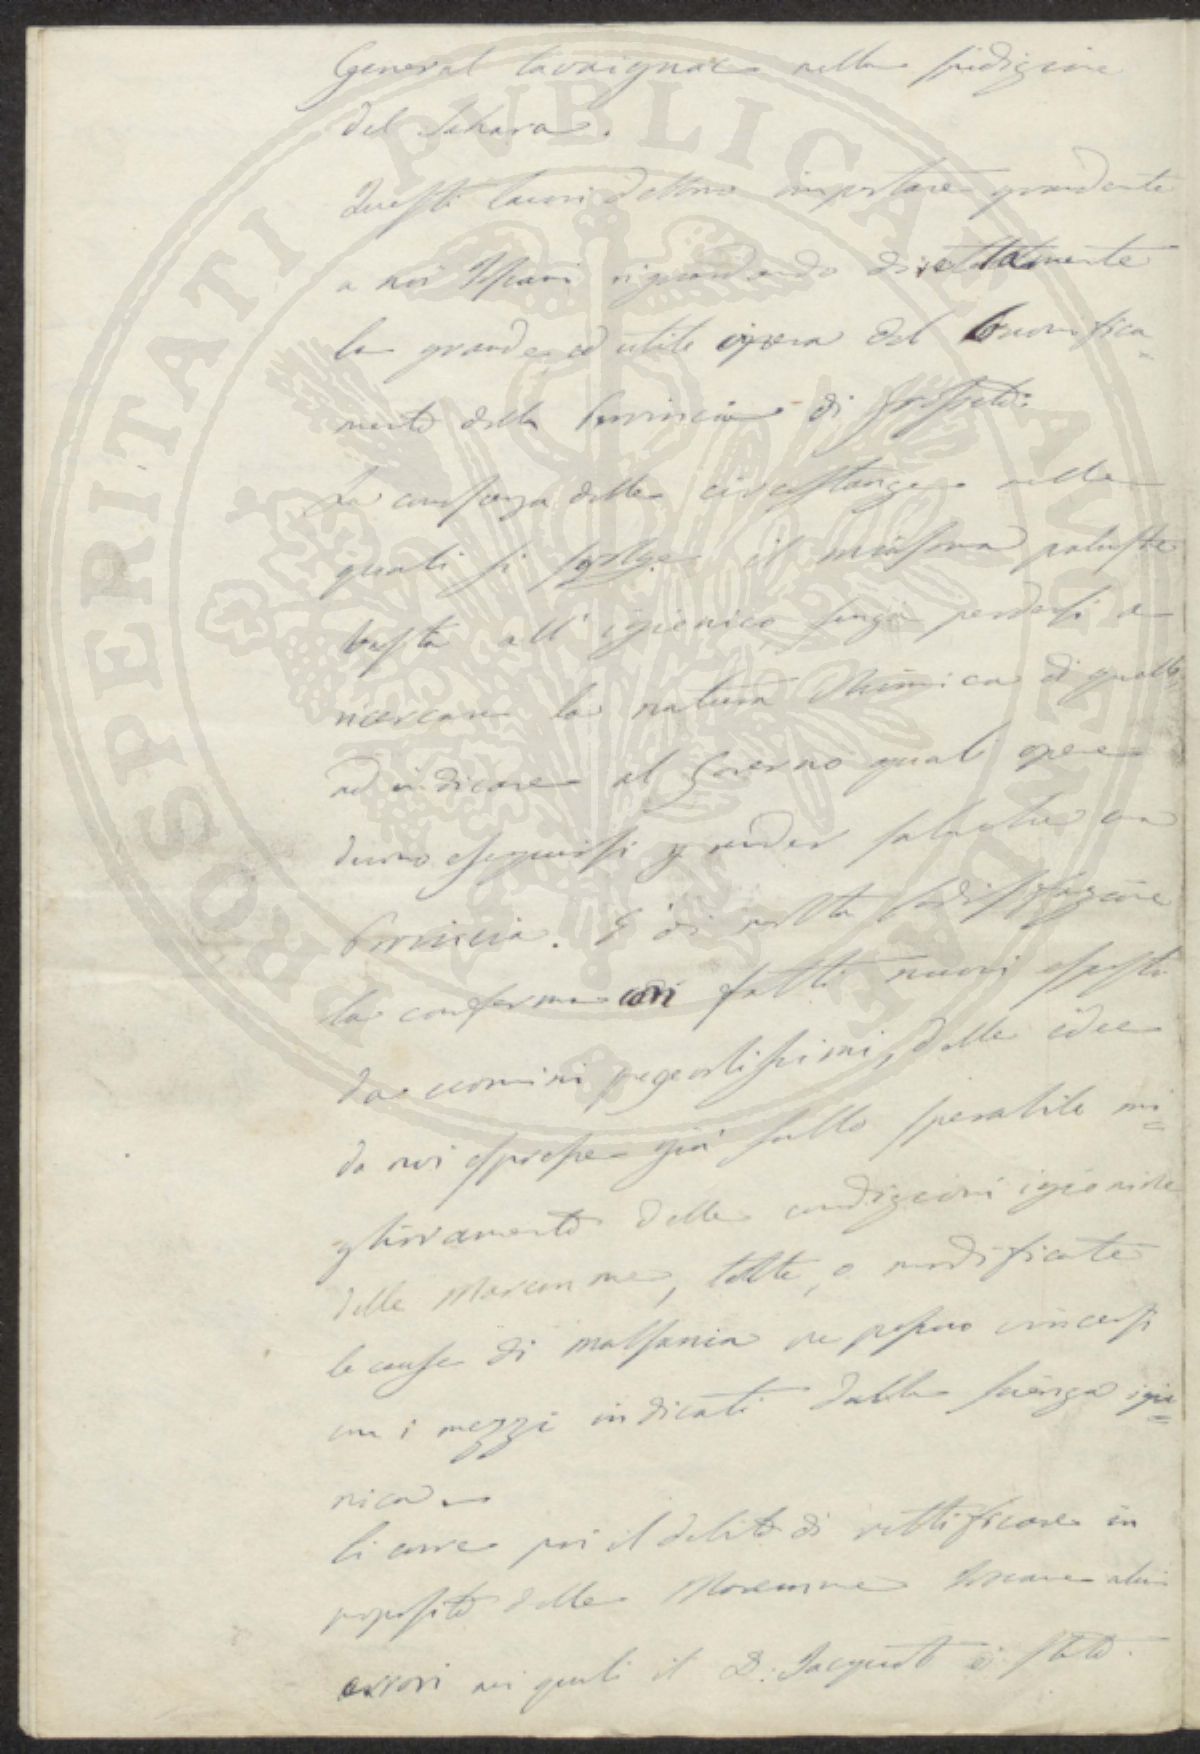 General Cavaignac nella spedizione
del Sahara.
Questi lavori debbono importare grandemente
a noi Toscani riguardando direttamente
la grande, ed utile opera del buonifica-
mento della Provincia di Grosseto.
La conoscenza delle circostanze nelle
quali si svolge il miasma palustre
basta all'igienico, senza perdersi a
ricercare la natura chimica di quello,
ad indicare al Governo quali opere
devono eseguirsi per render salubre una
Provincia. È di molta sodisfazione
la conferma con fatti nuovi esposti
da uomini pregevolissimi, delle idee
da noi espresse già sullo sperabile mi=
glioramento delle condizioni igieniche
delle Maremme, tolte, o modificate
le cause di malsania che possono vincersi
con i mezzi indicati dalla scienza igie=
nica.
Ci corre poi il debito di rettificare in
proposito delle Maremme Toscane alcuni
errori nei quali il D. Jacquot è stato
PROSPERITATI PVBLICAE AVGENDAE